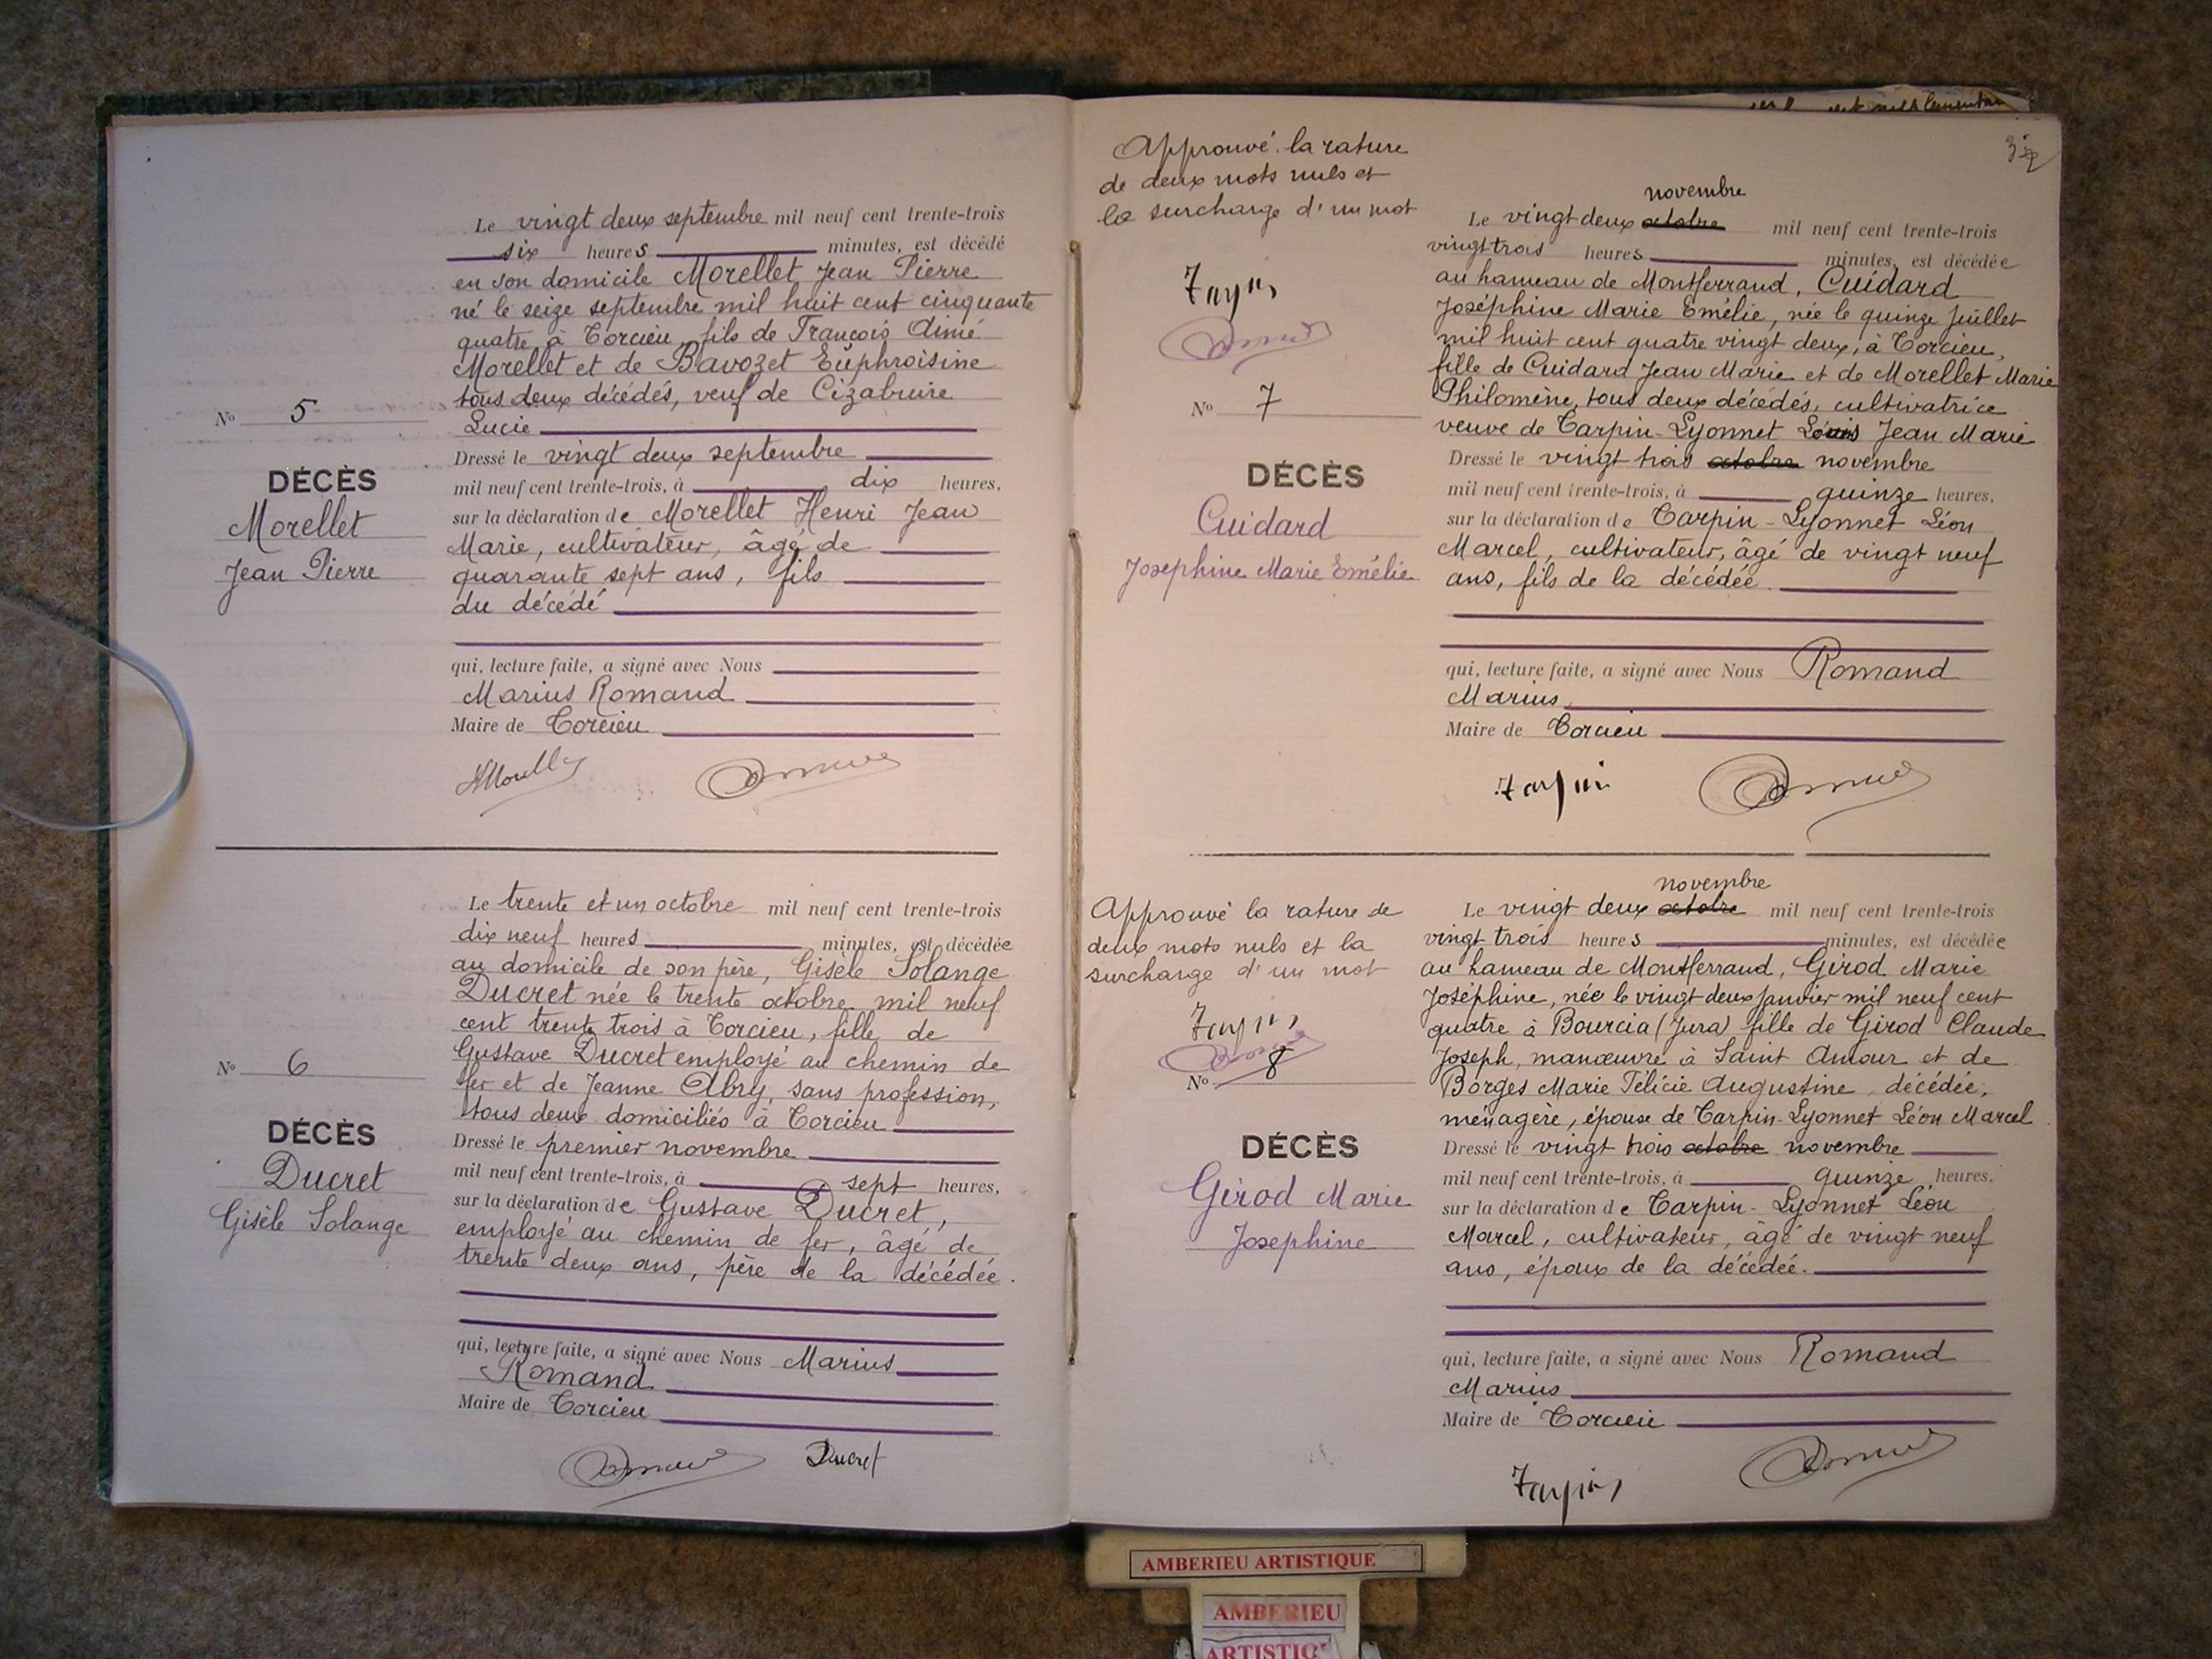 Le vingt deux septembre mil neuf cent trente-trois
six heures minutes, est décédé
en son domicile Morellet Jean Pierre
né le seize septembre mil huit cent cinquante
quatre à Torcieu, fils de François Aimé
Morellet et de Bavozet Euphroisine
tous deux décédés, veuf de Cizabuire
Lucie
No 5
DÉCÈS
Morellet
Jean Pierre
Dressé le vingt deux septembre
mil neuf cent trente-trois, à dix heures,
sur la déclaration de Morellet Henri Jean
Marie, cultivateur, âgé de
quarante sept ans, fils
du décédé
qui, lecture faite, a signé avec Nous
Marius Romand
Maire de Torcieu
Le trente et un octobre mil neuf cent trente-trois
dix neuf heures minutes, est décédée
au domicile de son père, Gisèle Solange
Ducret née le trente octobre mil neuf
cent trente trois à Torcieu, fille de
Gustave Ducret employé au chemin de
fer et de Jeanne Abry, sans profession,
tous deux domiciliés à Torcieu
No 6
DÉCÈS
Ducret
Gisèle Solange
Dressé le premier novembre
mil neuf cent trente-trois, à sept heures,
sur la déclaration de Gustave Ducret,
employé au chemin de fer, âgé de
trente deux ans, père de la décédée.
qui, lecture faite, a signé avec Nous Marius
Romand
Maire de Torcieu
Ducret
Approuvé la rature
de deux mots nuls et
la surcharge d'un mot
Tarpin
No 7
DÉCÈS
Cuidard
Josephine Marie Emélie
novembre
Le vingt deux octobre mil neuf cent trente-trois
vingt trois heures minutes, est décédée
au hameau de Montferrand, Cuidard
Joséphine Marie Emélie, née le quinze Juillet
mil huit cent quatre vingt deux, à Torcieu,
fille de Cuidard Jean Marie et de Morellet Marie
Philomène, tous deux décédés, cultivatrice
veuve de Tarpin-Lyonnet Louis Jean Marie
Dressé le vingt trois octobre novembre
mil neuf cent trente-trois, à quinze heures,
sur la déclaration de Tarpin-Lyonnet Léon
Marcel, cultivateur, âgé de vingt neuf
ans, fils de la décédée.
qui, lecture faite, a signé avec Nous Romand
Marius
Maire de Torcieu
Tarpin
Approuvé la rature de
deux mots nuls et la
surcharge d'un mot
Tarpin
No 8
DÉCÈS
Girod Marie
Josephine
novembre
Le vingt deux octobre mil neuf cent trente-trois
vingt trois heures minutes, est décédée
au hameau de Montferrand, Girod Marie
Joséphine, née le vingt deux Janvier mil neuf cent
quatre à Bourcia (Jura) fille de Girod Claude
Joseph, manœuvre à Saint Amour et de
Borges Marie Félicie Augustine, décédée,
ménagère, épouse de Tarpin-Lyonnet Léon Marcel
Dressé le vingt trois octobre novembre
mil neuf cent trente-trois, à quinze heures,
sur la déclaration de Tarpin-Lyonnet Léon
Marcel, cultivateur, âgé de vingt neuf
ans, époux de la décédée.
qui, lecture faite, a signé avec Nous Romand
Marius
Maire de Torcieu
Tarpin
AMBERIEU ARTISTIQUE
AMBERIEU
ARTISTIQ